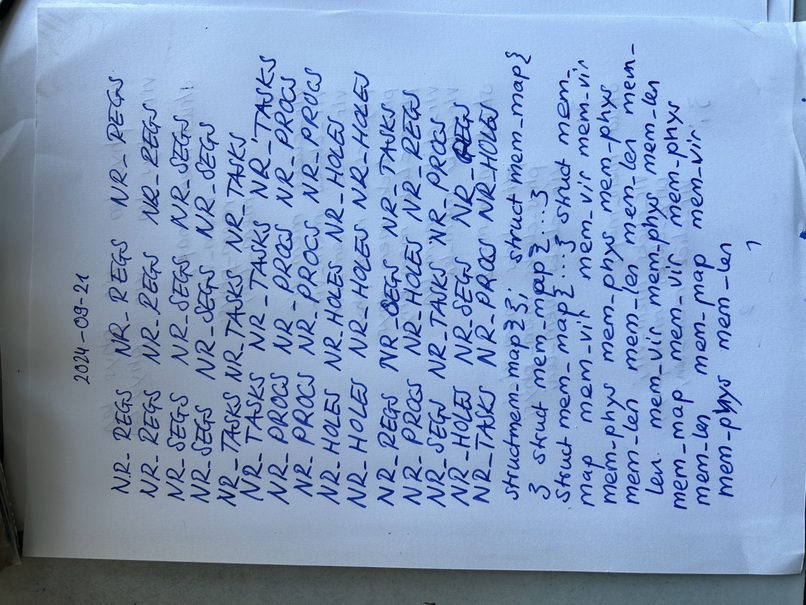 2024-09-21
NR_REGS NR_REGS NR_REGS
NR_REGS NR_REGS NR_REGS
NR_SEGS NR_SEGS NR_SEGS
NR_SEGS NR_SEGS NR_SEGS
NR_TASKS NR_TASKS NR_TASKS
NR_TASKS NR_TASKS NR_TASKS
NR_PROCS NR_PROCS NR_PROCS
NR_PROCS NR_PROCS NR_PROCS
NR_HOLES NR_HOLES NR_HOLES
NR_HOLES NR_HOLES NR_HOLES
NR_REGS NR_SEGS NR_TASKS
NR_PROCS NR_HOLES NR_REGS
NR_SEGS NR_TASKS NR_PROCS
NR_HOLES NR_SEGS NR_REGS
NR_TASKS NR_PROCS NR_HOLES
struct mem_map{}; struct mem_map{
} struct mem_map{...}
struct mem_map{...} struct mem_
map mem_vir mem_vir mem_vir
mem_phys mem_phys mem_phys
mem_len mem_len mem_len mem_
len mem_vir mem_phys mem_len
mem_map mem_vir mem_phys
mem_len mem_map mem_vir
mem_phys mem_len
1